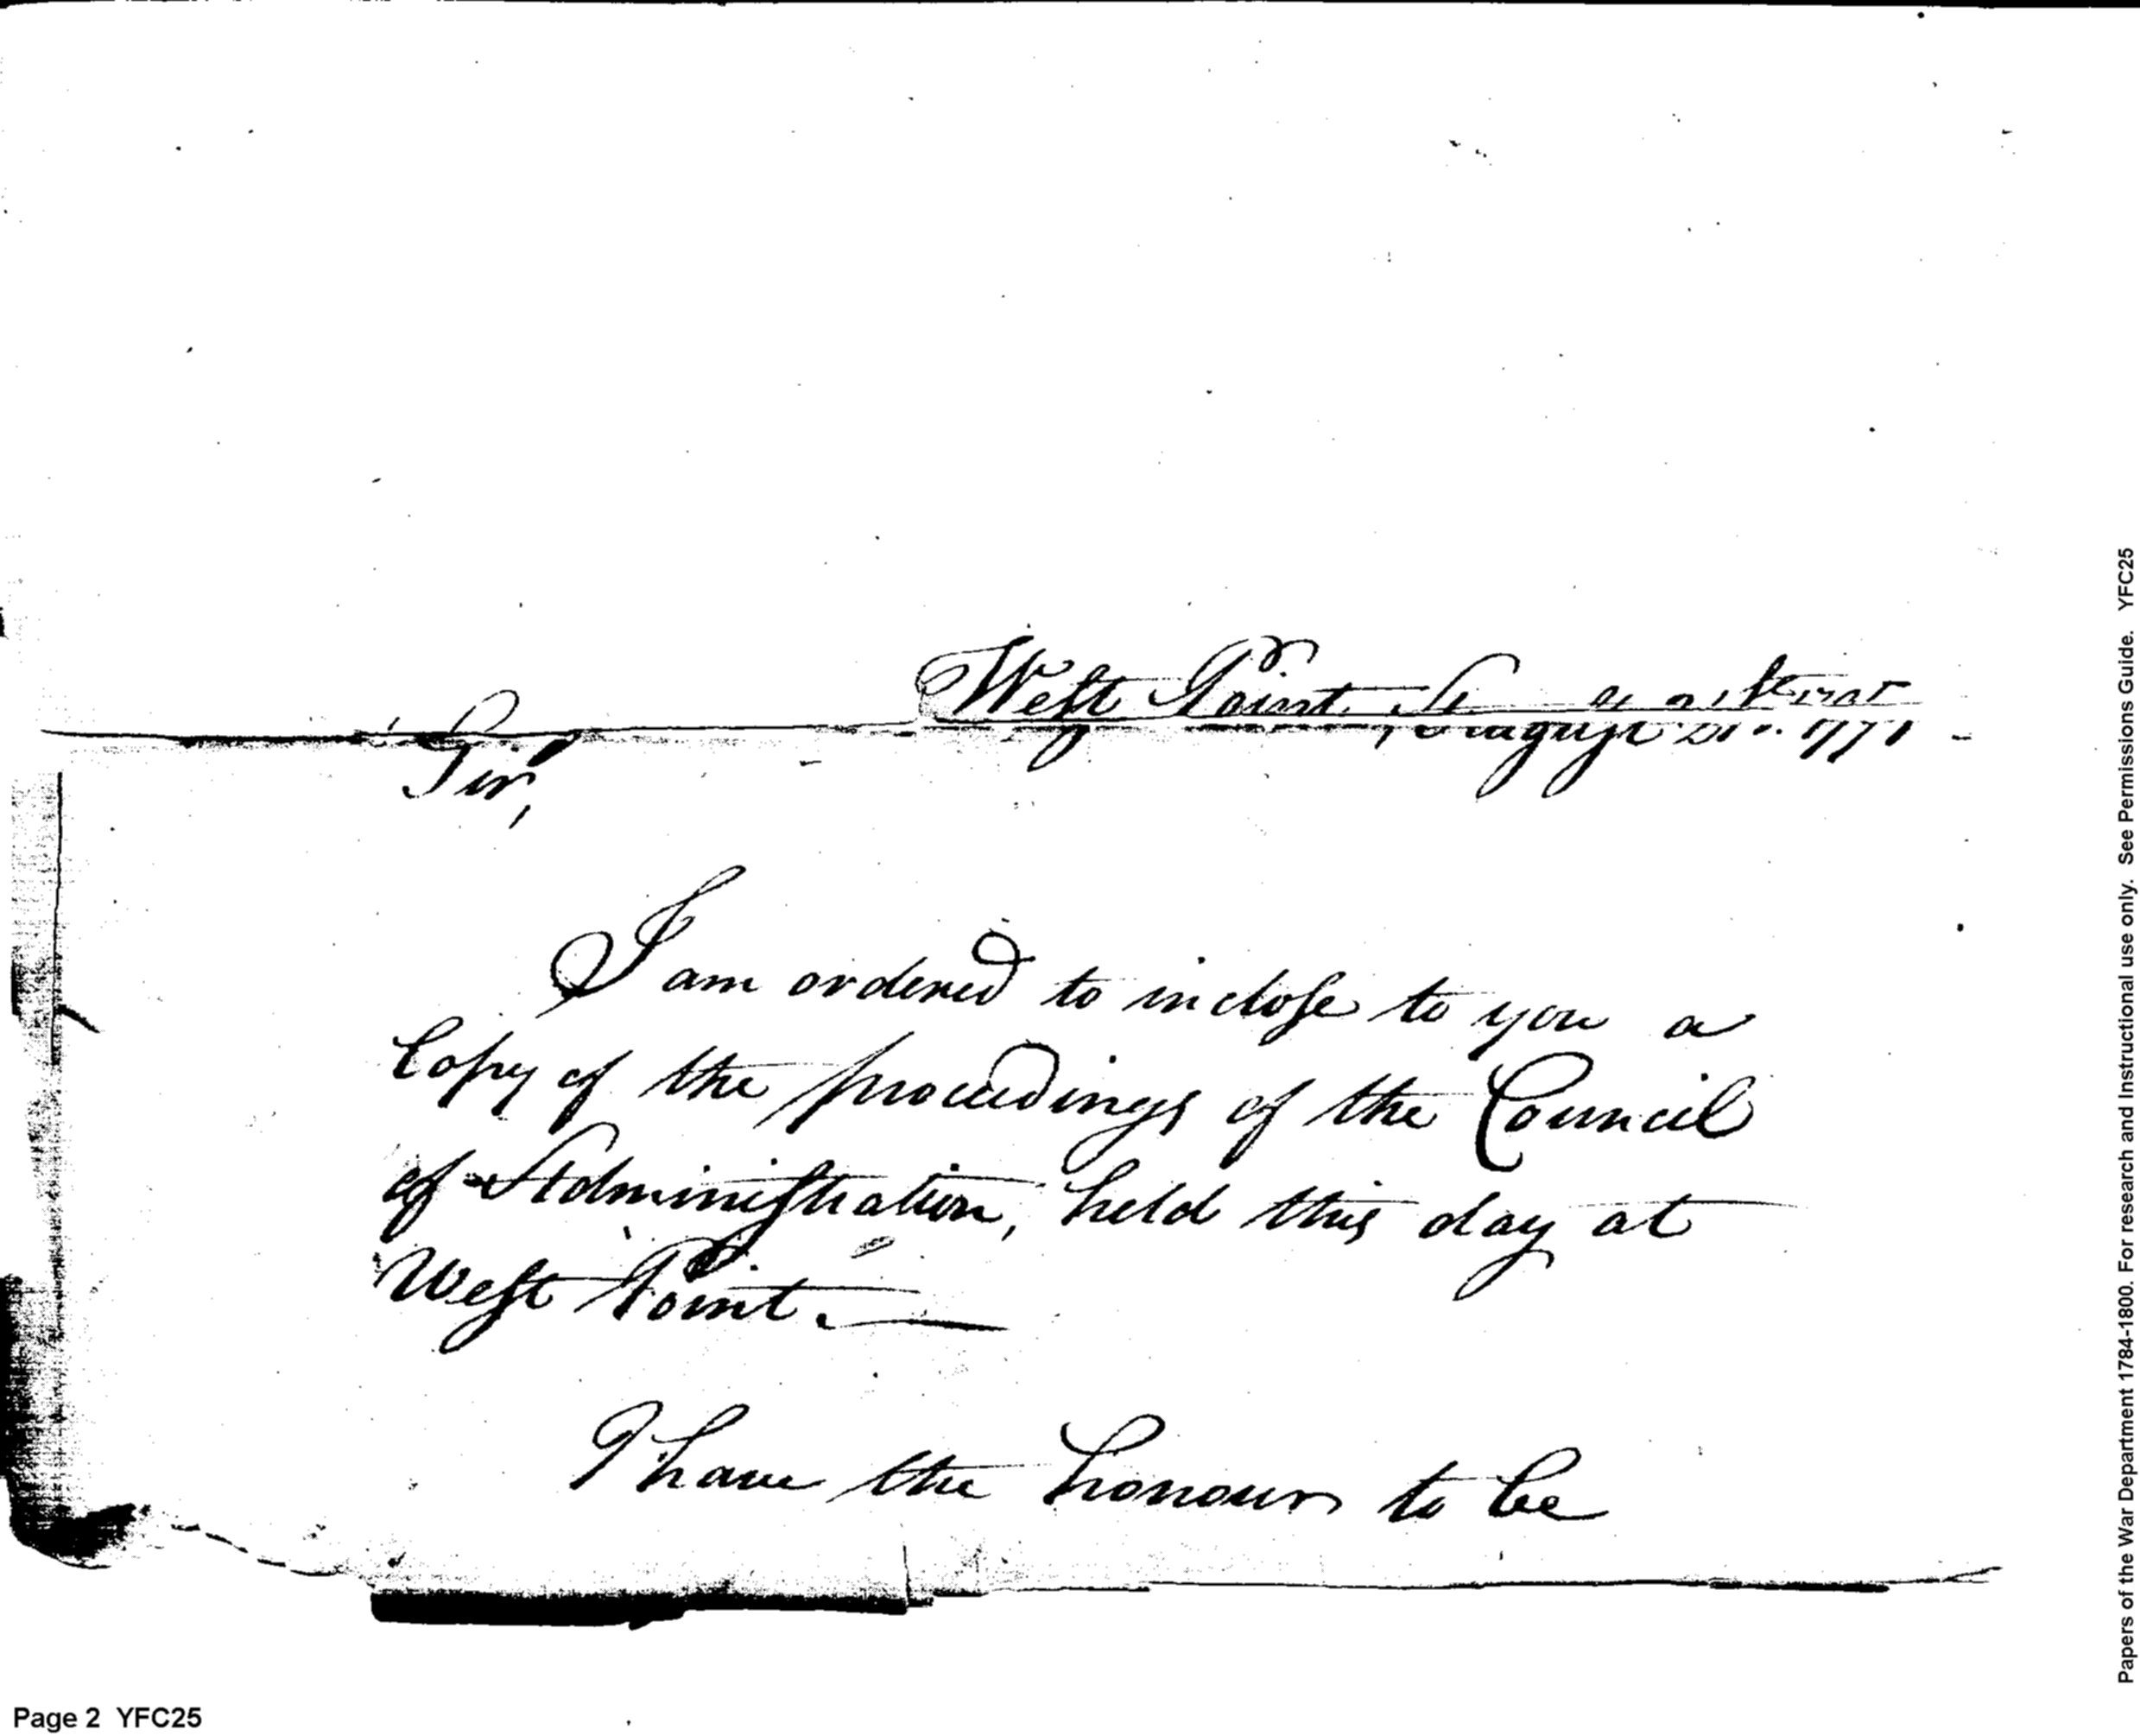 West Point
Sir,
I am ordered to inclose to you a
Copy of the proceedings of the Council
of Administration, held this day at
West Point.
I have the honour to be
Page 2 YFC25
Papers of the War Department 1784-1800. For research and Instructional use only. See Permissions Guide. YFC25